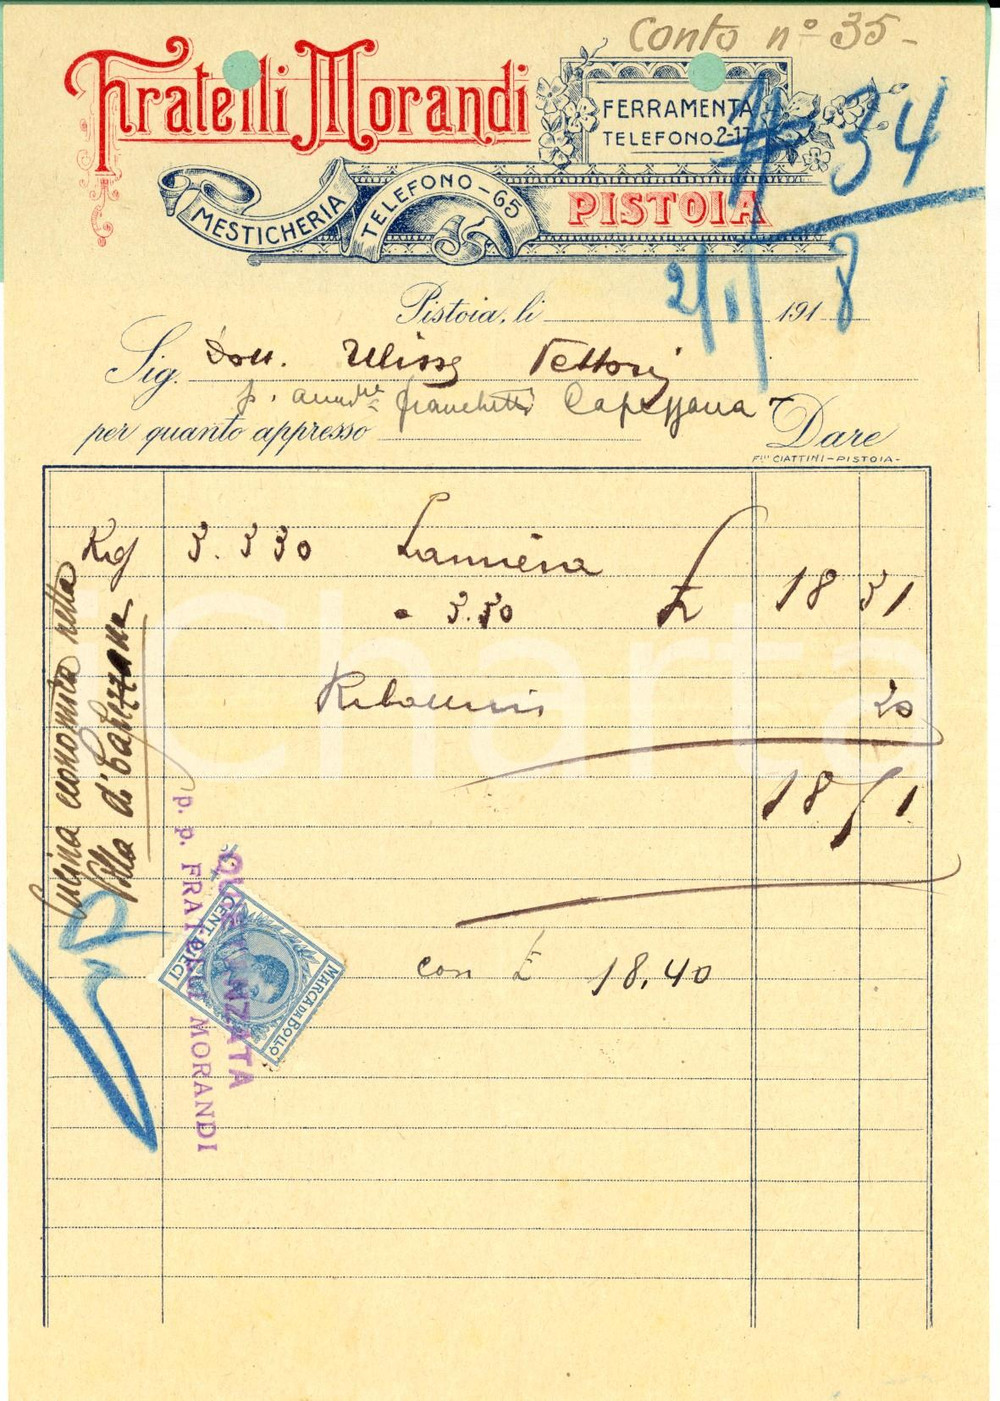 Conto n° 35-
Fratelli Morandi
FERRAMENTA
TELEFONO 2-17
N 34
MESTICHERIA
TELEFONO-65
PISTOIA
2/1/
Pistoia, li 1918
Sig. Dott. Ulisse Vettori
p. Franchetti Capezzana
per quanto appresso Dare
F.lli CIATTINI-PISTOIA-
Kg 3.330 Lamiera
a 5.50 £ 18 31
20
18 71
con £ 18.40
Cucina economica nella
Villa di Capezzana
p. p. FRATELLI MORANDI
QUIETANZATA
CENT. DIECI
MARCA DA BOLLO
Charta